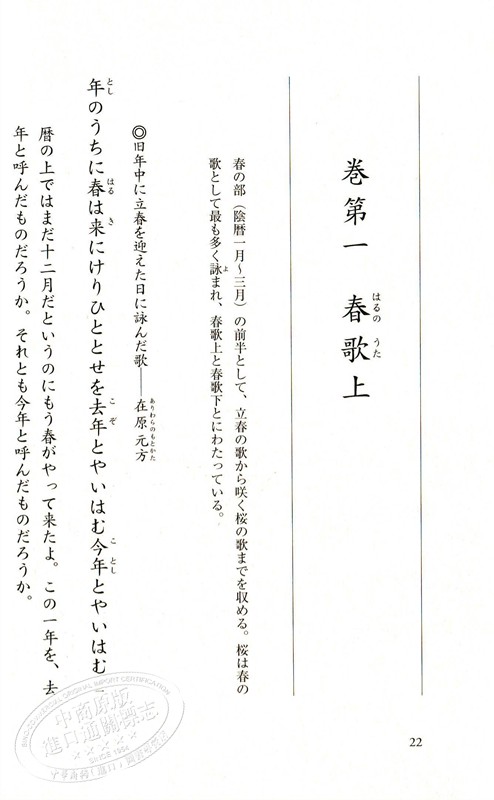 巻第一　春歌上
はるの　うた
春の部（陰暦一月〜三月）の前半として、立春の歌から咲く桜の歌までを収める。桜は春の
歌として最も多く詠まれ、春歌上と春歌下とにわたっている。
よ
◎旧年中に立春を迎えた日に詠んだ歌——在原元方
ありわらのもとかた
年のうちに春は来にけりひととせを去年とやいはむ今年とやいはむ
とし　はる　き　こぞ　ことし
暦の上ではまだ十二月だというのにもう春がやって来たよ。この一年を、去
年と呼んだものだろうか。それとも今年と呼んだものだろうか。
22
中商原版
進口通關標志
SINCE 1984